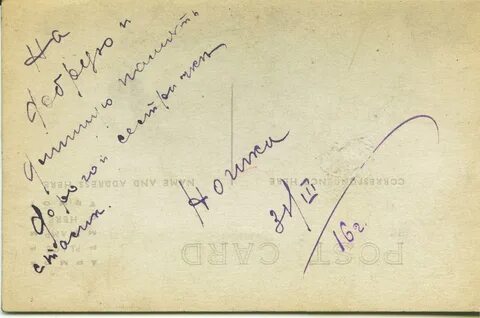 На
добрую и
длинную память
дорогой сестричке
стасик.
Ночика
31/III
16 г.
CORRESPONDENCE HERE
NAME AND ADDRESS HERE
POST CARD